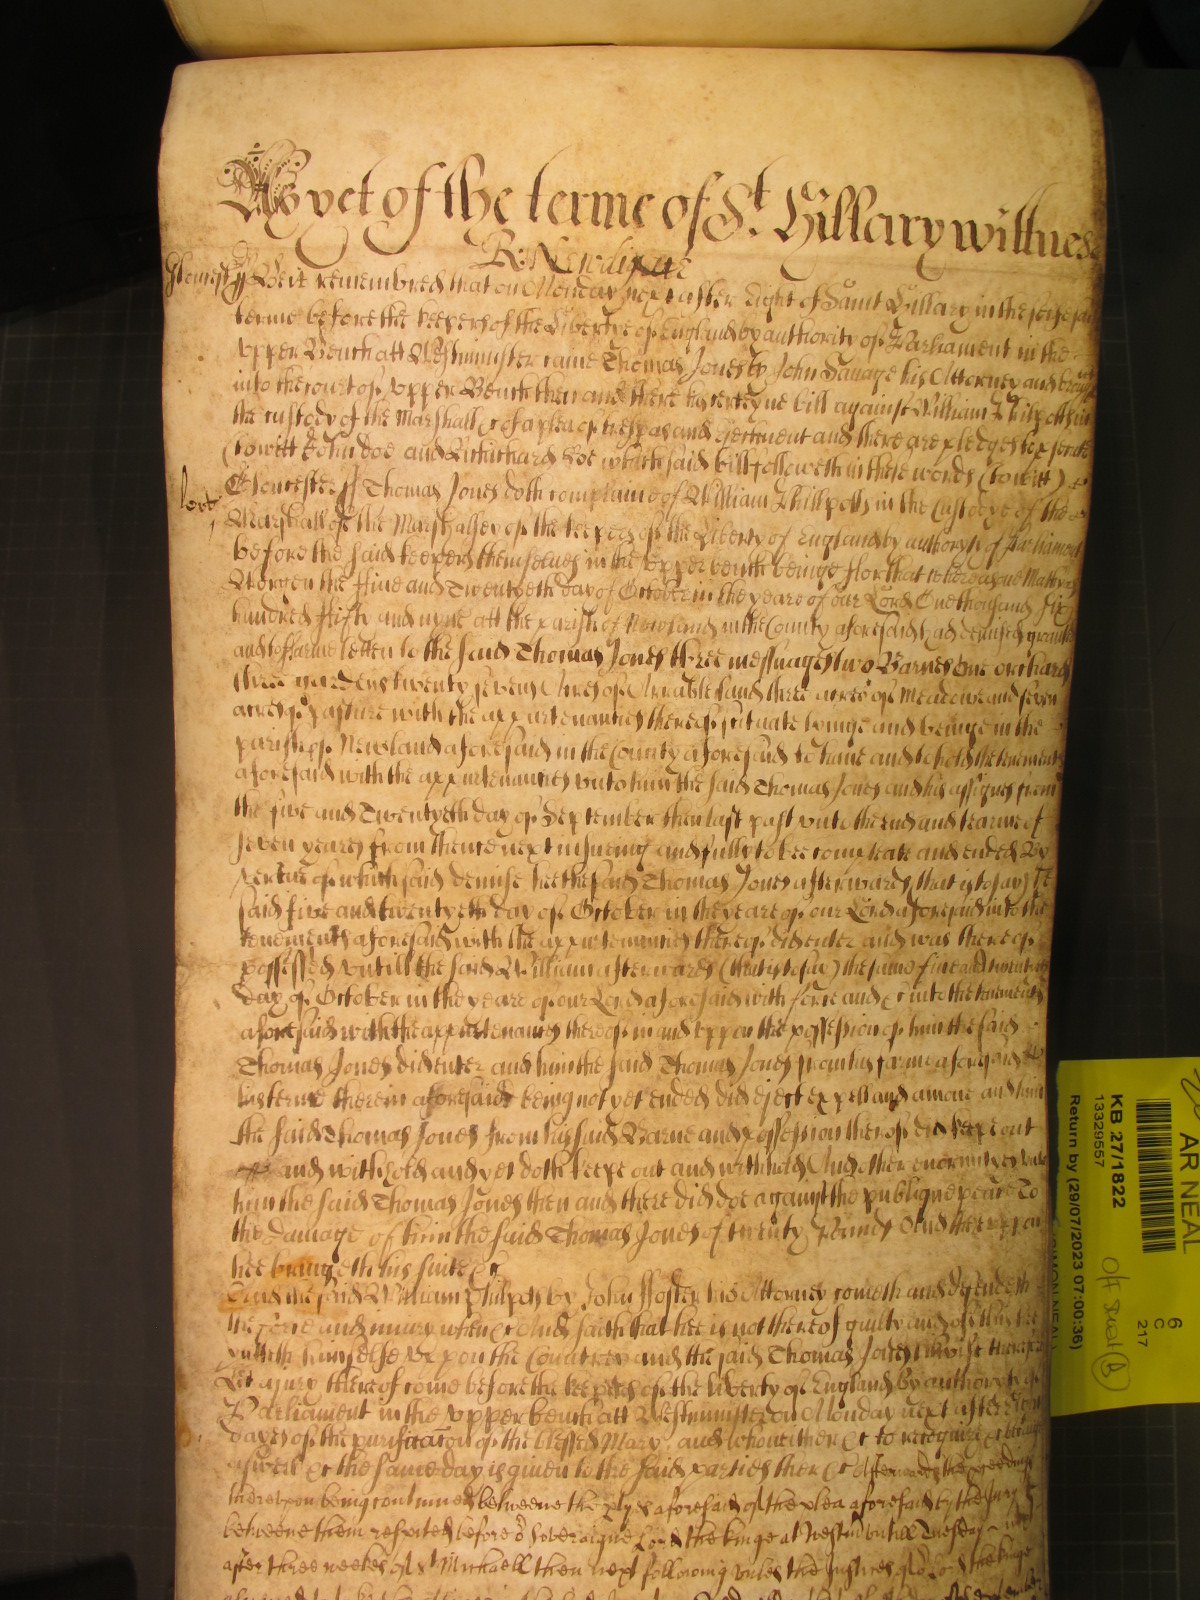 As yet of the terme of St Hillary wittnes
R: Newdigate
Gloucest ss Be it remembred that on Monday next after Eight of Saint Hillary in the
terme before the keepers of the Libertye of England by authority of Parliament in the
Upper Bench att Westminster came Thomas Jones by John Savage his Attorney and brought
into the court of Upper Bench then and there his certeyne bill against William Philpotts in
the custody of the Marshall &c of a plea of trespas and Ejectment and there are pledges to
(towitt) John doe and Richard Roe which said bill followeth in these words (towitt)
Gloucester ss Thomas Jones doth complaine of William Phillpotts in the Custodye of the
Marshall of the Marshalsey of the keepers of the Liberty of England by authoryty of Parliament
before the said keepers themselves in the upper bench beinge ffor that whereas one
Morgen the ffive and Twentyeth day of October in the yeare of our Lord One thousand six
hundred ffifty and nyne att the parish of Newland in the County aforesaid had demised graunted
and to ffarme letten to the said Thomas Jones three messuages two Barnes One orchard
three gardens twenty seven Acres of Arrable land three acres of meadowe and seven
acres of pasture with the appurtenances thereof scituate lyinge and beinge in the
parish of Newland aforesaid in the County aforesaid To have and to hold the tenements
aforesaid with the appurtenances unto him the said Thomas Jones and his assignes from
the five and Twentyeth day of September then last past unto the end and tearme of
seven yeares from thence next insueing and fully to bee compleate and ended By
vertue of which said demise hee the said Thomas Jones afterwards that is to say the
said five and twentyeth day of October in the yeare of our Lord aforesaid into the
tenements aforesaid with the appurtenances thereof did enter and was thereof
possessed untill the said William afterwards (that is to say) the same five and twentieth
day of October in the yeare of our Lord aforesaid with force and &c into the tenements
aforesaid with the appurtenances thereof in and uppon the possession of him the said
Thomas Jones did enter and him the said Thomas Jones from his farme aforesaid
his terme therein aforesaid being not yet ended did eject expell and amove and him
the said Thomas Jones from his said ffarme and possession therof did keepe out
and withhold and yet doth keepe out and withhold And other enormityes
him the said Thomas Jones then and there did doe against the publique peace To
the damage of him the said Thomas Jones of twenty Pounds And thereuppon
hee bringeth his suite &c
And the said William Philpots by John ffoster his Attorney cometh and defendeth
the force and iniury when &c And saith that hee is not thereof guilty and of this hee
putteth himselfe uppon the Countrey and the said Thomas Jones likewise
Let a jury thereof come before the keepers of the liberty of England by authority of
Parliament in the upper bench att Westminster on Monday next after
dayes of the purificacion of the blessed Mary and who neither &c to recognize &c because
aswell &c the same day is given to the said parties ther &c Afterwards the proceedings
thereupon being continued betweene the ptyes aforesaid of the plea aforesaid by the Jury
betweene them respited before or Soveraigne Lord the kinge at Westmr untill Tuesday
after three weekes of St Michaell then next following unles the Justices of or Lord the kinge
KB 27/1822
13329557
Return by (29/07/2023 07:00:36)
AR NEAL
SIMON NEAL
6
C
217